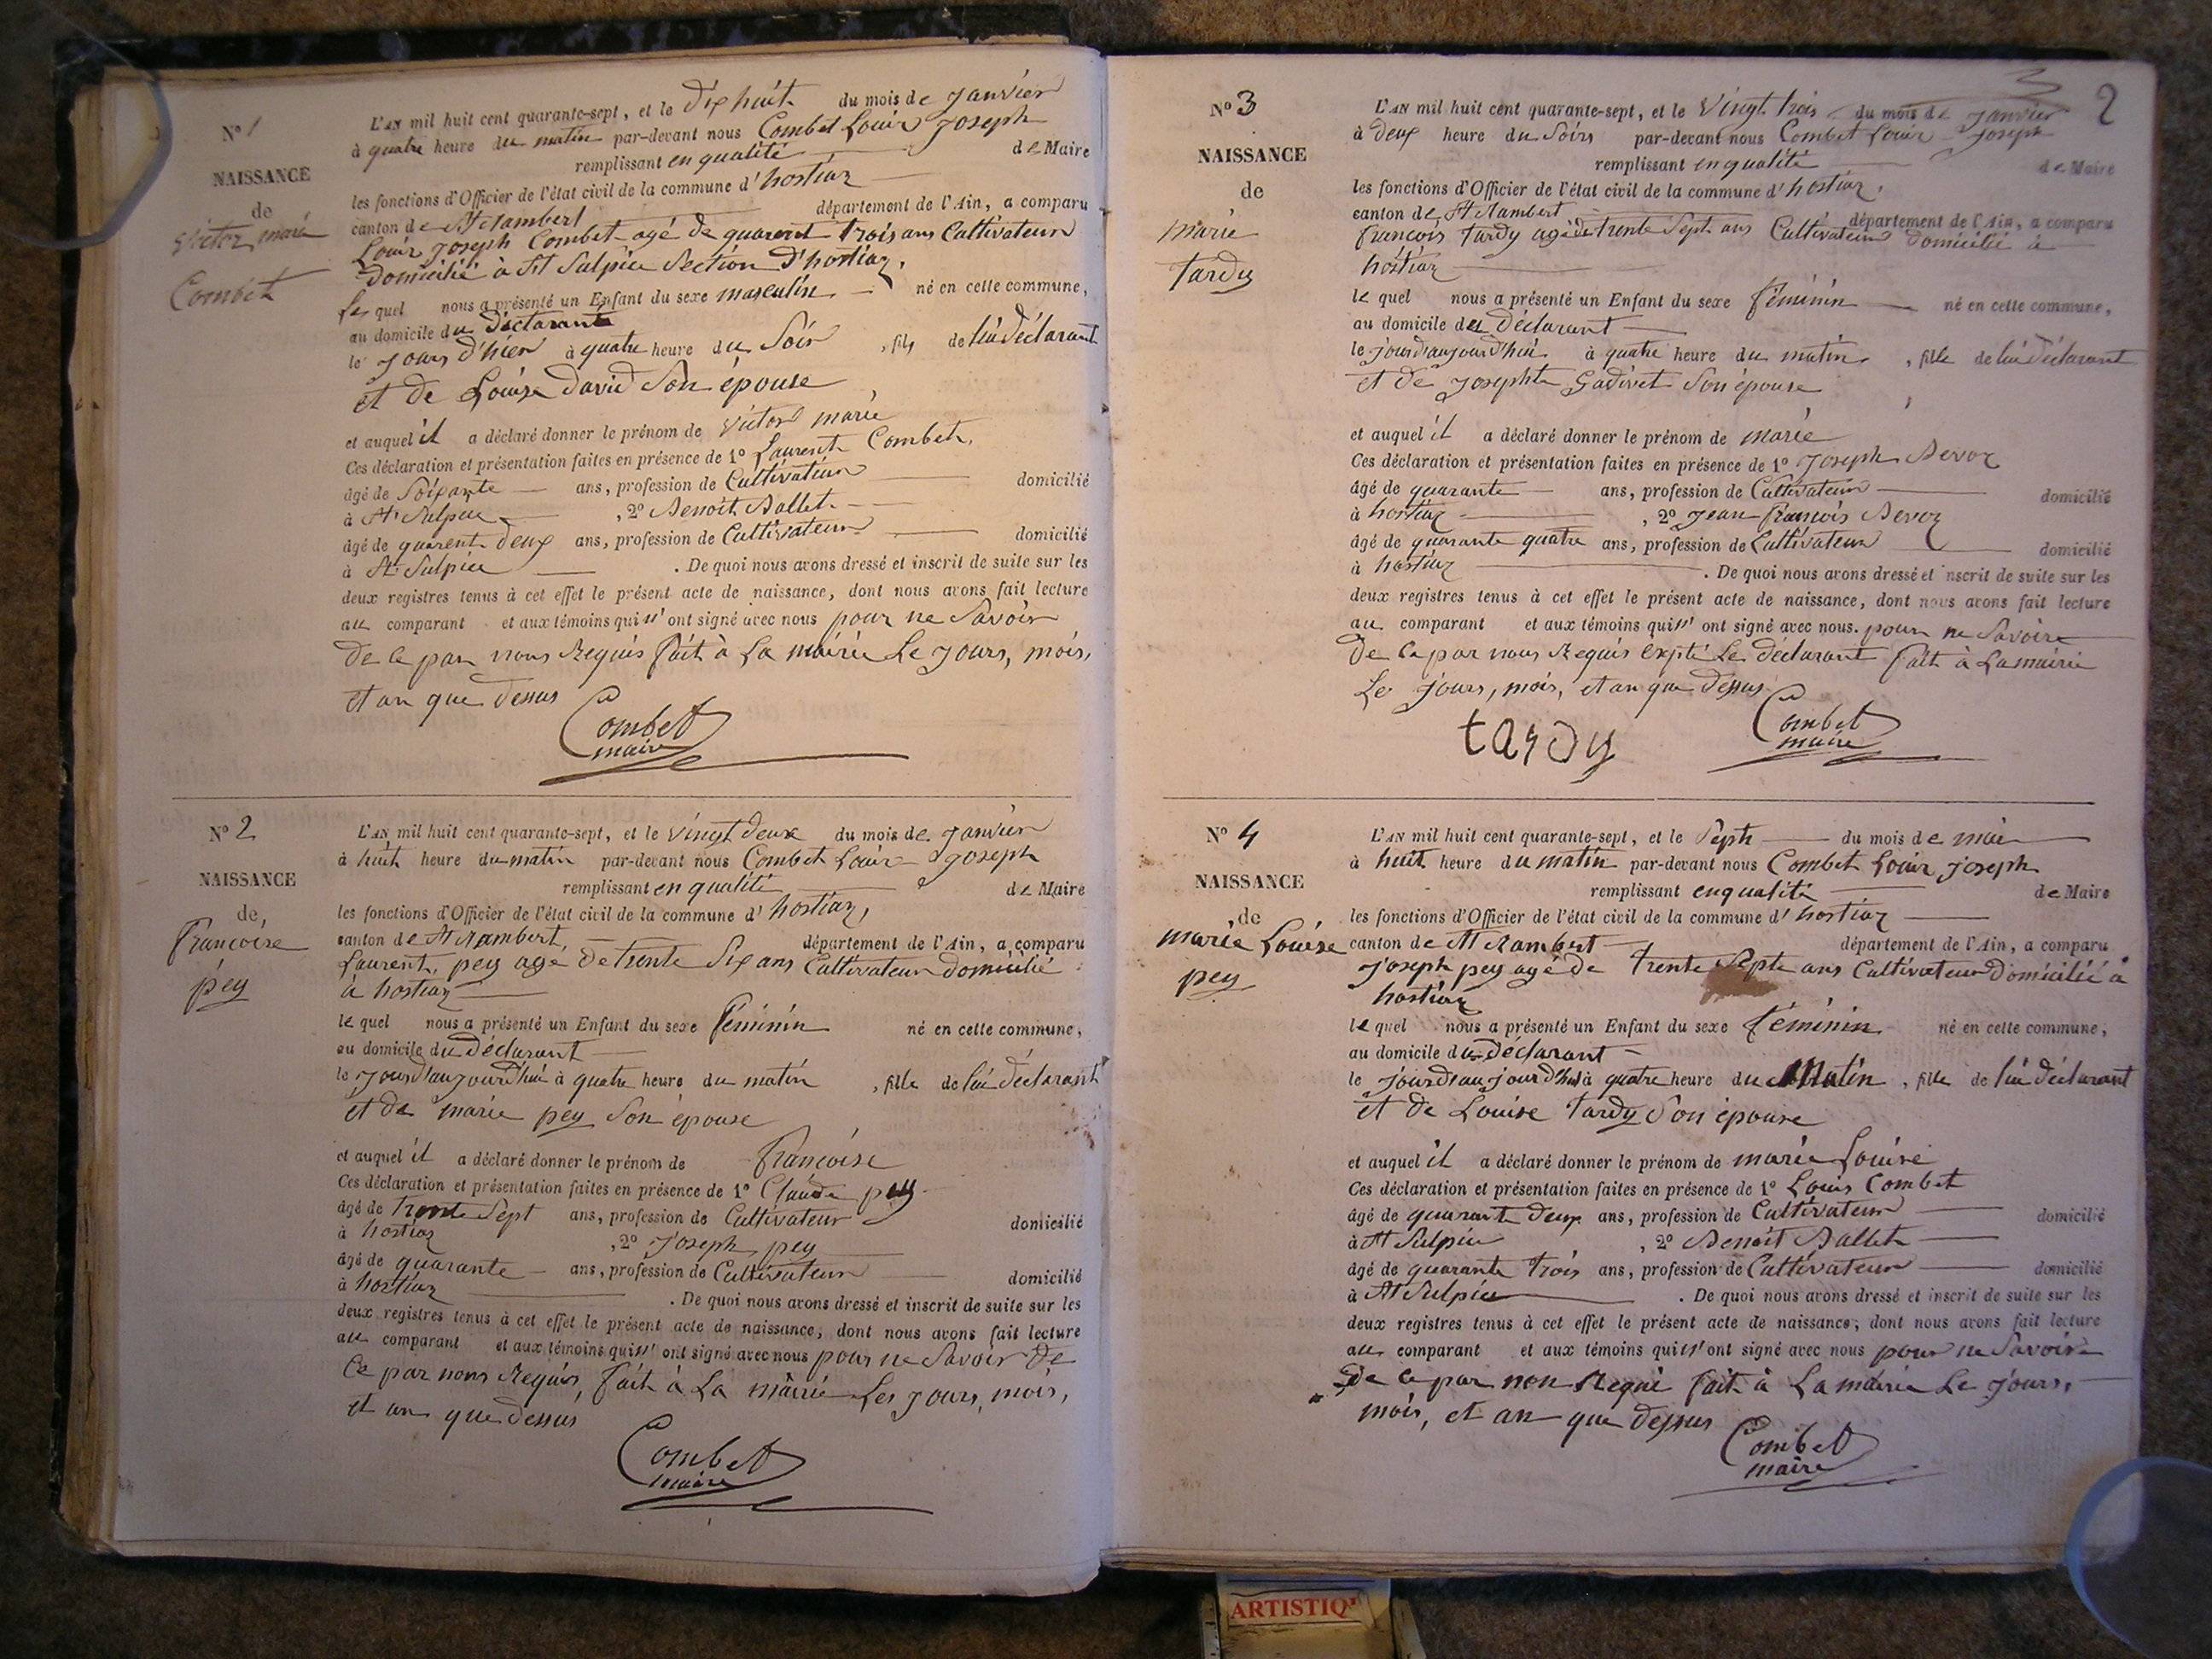 N° 1
NAISSANCE
de
Victor marie
Combet
L'AN mil huit cent quarante-sept, et le Dix huit du mois de Janvier
à quatre heure du matin par-devant nous Combet Louis Joseph
remplissant en qualité de Maire
les fonctions d'Officier de l'état civil de la commune d'hostiaz
canton de St Rambert département de l'Ain, a comparu
Louis Joseph Combet agé de quarent trois ans Cultivateur
Domicilié à St Sulpice Section D'hostiaz,
le quel nous a présenté un Enfant du sexe masculin né en cette commune,
au domicile du Déclarant
le Jours d'hier à quatre heure du Soir, fils de lui déclarant
et de Louise David Son épouse
et auquel il a déclaré donner le prénom de Victor marie
Ces déclaration et présentation faites en présence de 1° Laurent Combet,
âgé de Soixante ans, profession de Cultivateur domicilié
à St Sulpice, 2° Benoit Ballet
âgé de quarent Deux ans, profession de Cultivateur domicilié
à St Sulpice. De quoi nous avons dressé et inscrit de suite sur les
deux registres tenus à cet effet le présent acte de naissance, dont nous avons fait lecture
au comparant et aux témoins qui n'ont signé avec nous pour ne Savoir
De ce par nous Requis fait à La mairie Le Jours, mois,
et an que Dessus
Combet
maire
N° 2
NAISSANCE
de,
Francoise
pey
L'AN mil huit cent quarante-sept, et le Vingt deux du mois de Janvier
à huit heure du matin par-devant nous Combet Louis Joseph
remplissant en qualité de Maire
les fonctions d'Officier de l'état civil de la commune d'hostiaz,
canton de St Rambert, département de l'Ain, a comparu
Laurent pey age De trente Six ans Cultivateur Domicilié
à hostiaz
le quel nous a présenté un Enfant du sexe féminin né en cette commune,
au domicile du Déclarant
le Jour d'aujourd'hui à quatre heure du matin, fille de lui déclarant
et de marie pey Son épouse
et auquel il a déclaré donner le prénom de françoise
Ces déclaration et présentation faites en présence de 1° Claude pey
âgé de trente Sept ans, profession de Cultivateur domicilié
à hostiaz, 2° Joseph pey
âgé de quarante ans, profession de Cultivateur domicilié
à hostiaz. De quoi nous avons dressé et inscrit de suite sur les
deux registres tenus à cet effet le présent acte de naissance, dont nous avons fait lecture
au comparant et aux témoins qui n'ont signé avec nous pour ne Savoir De
Ce par nous Requis, fait à La mairie Les Jours, mois,
et an que dessus
Combet
maire
2
N° 3
NAISSANCE
de
marie
Tardy
L'AN mil huit cent quarante-sept, et le Vingt trois du mois de Janvier
à Deux heure du Soirs par-devant nous Combet Louis Joseph
remplissant en qualité de Maire
les fonctions d'Officier de l'état civil de la commune d'hostiaz,
canton de St Rambert département de l'Ain, a comparu
francois Tardy agé de trente Sept ans Cultivateur Domicilié à
hostiaz
le quel nous a présenté un Enfant du sexe féminin né en cette commune,
au domicile du Déclarant
le jour d'aujourd'hui à quatre heure du matin, fille de lui déclarant
et de Josephte Gadivet Son épouse
et auquel il a déclaré donner le prénom de marie
Ces déclaration et présentation faites en présence de 1° Joseph Bevoz
âgé de quarante ans, profession de Cultivateur domicilié
à hostiaz, 2° Jean francois Bevoz
âgé de quarante quatre ans, profession de Cultivateur domicilié
à hostiaz. De quoi nous avons dressé et inscrit de suite sur les
deux registres tenus à cet effet le présent acte de naissance, dont nous avons fait lecture
au comparant et aux témoins qui n'ont signé avec nous. pour ne Savoire
De Ce par nous Requis Expté Le declarant fait à La mairie
Le Jours, mois, et an que Dessus
tardy
Combet
maire
N° 4
NAISSANCE
de
marie Louise
pey
L'AN mil huit cent quarante-sept, et le Sept du mois de mai
à huit heure du matin par-devant nous Combet Louis Joseph
remplissant en qualité de Maire
les fonctions d'Officier de l'état civil de la commune d'hostiaz
canton de St Rambert département de l'Ain, a comparu
Joseph pey agé de trente Septe ans Cultivateur Domicilié à
hostiaz
le quel nous a présenté un Enfant du sexe féminin né en cette commune,
au domicile du déclarant
le jour d'aujourd'hui à quatre heure du Matin, fille de lui déclarant
et de Louise Tardy Son épouse
et auquel il a déclaré donner le prénom de marie Louise
Ces déclaration et présentation faites en présence de 1° Louis Combet
âgé de quarant Deux ans, profession de Cultivateur domicilié
à St Sulpice, 2° Benoit Ballet
âgé de quarante trois ans, profession de Cultivateur domicilié
à St Sulpice. De quoi nous avons dressé et inscrit de suite sur les
deux registres tenus à cet effet le présent acte de naissance, dont nous avons fait lecture
au comparant et aux témoins qui n'ont signé avec nous pour ne Savoir
De ce par nou Requi fait à La mairie Le Jours,
mois, et an que Dessus
Combet
maire
ARTISTIQ